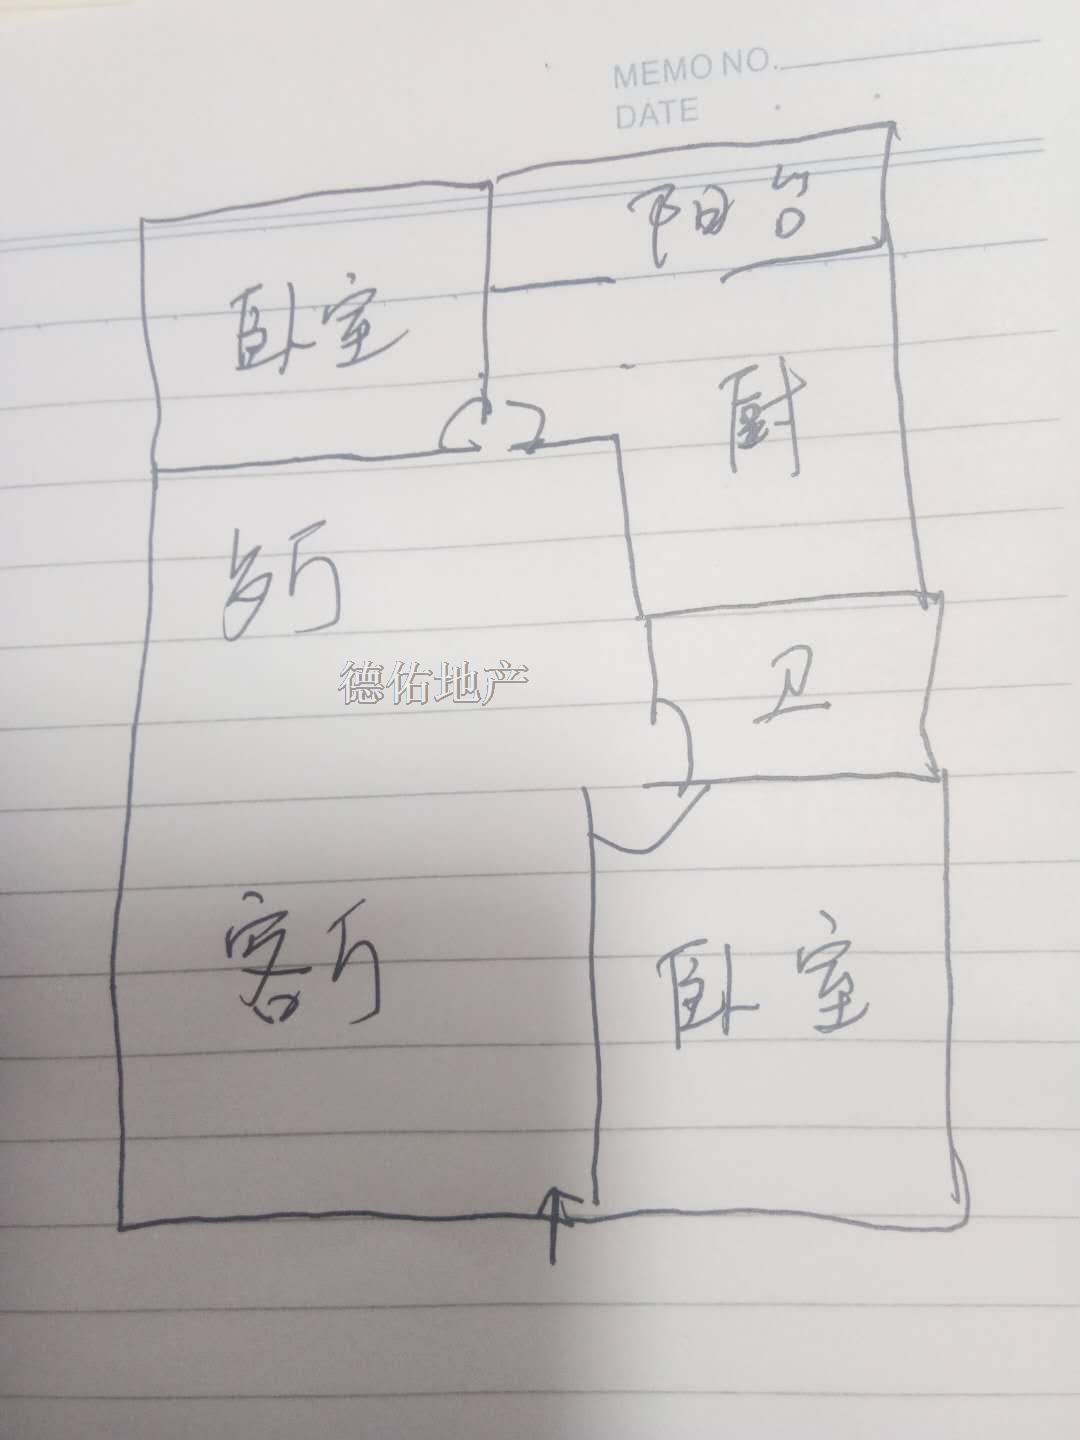 MEMO NO.
DATE
阳台
卧室
厨
德佑地产
卫
客厅
卧室